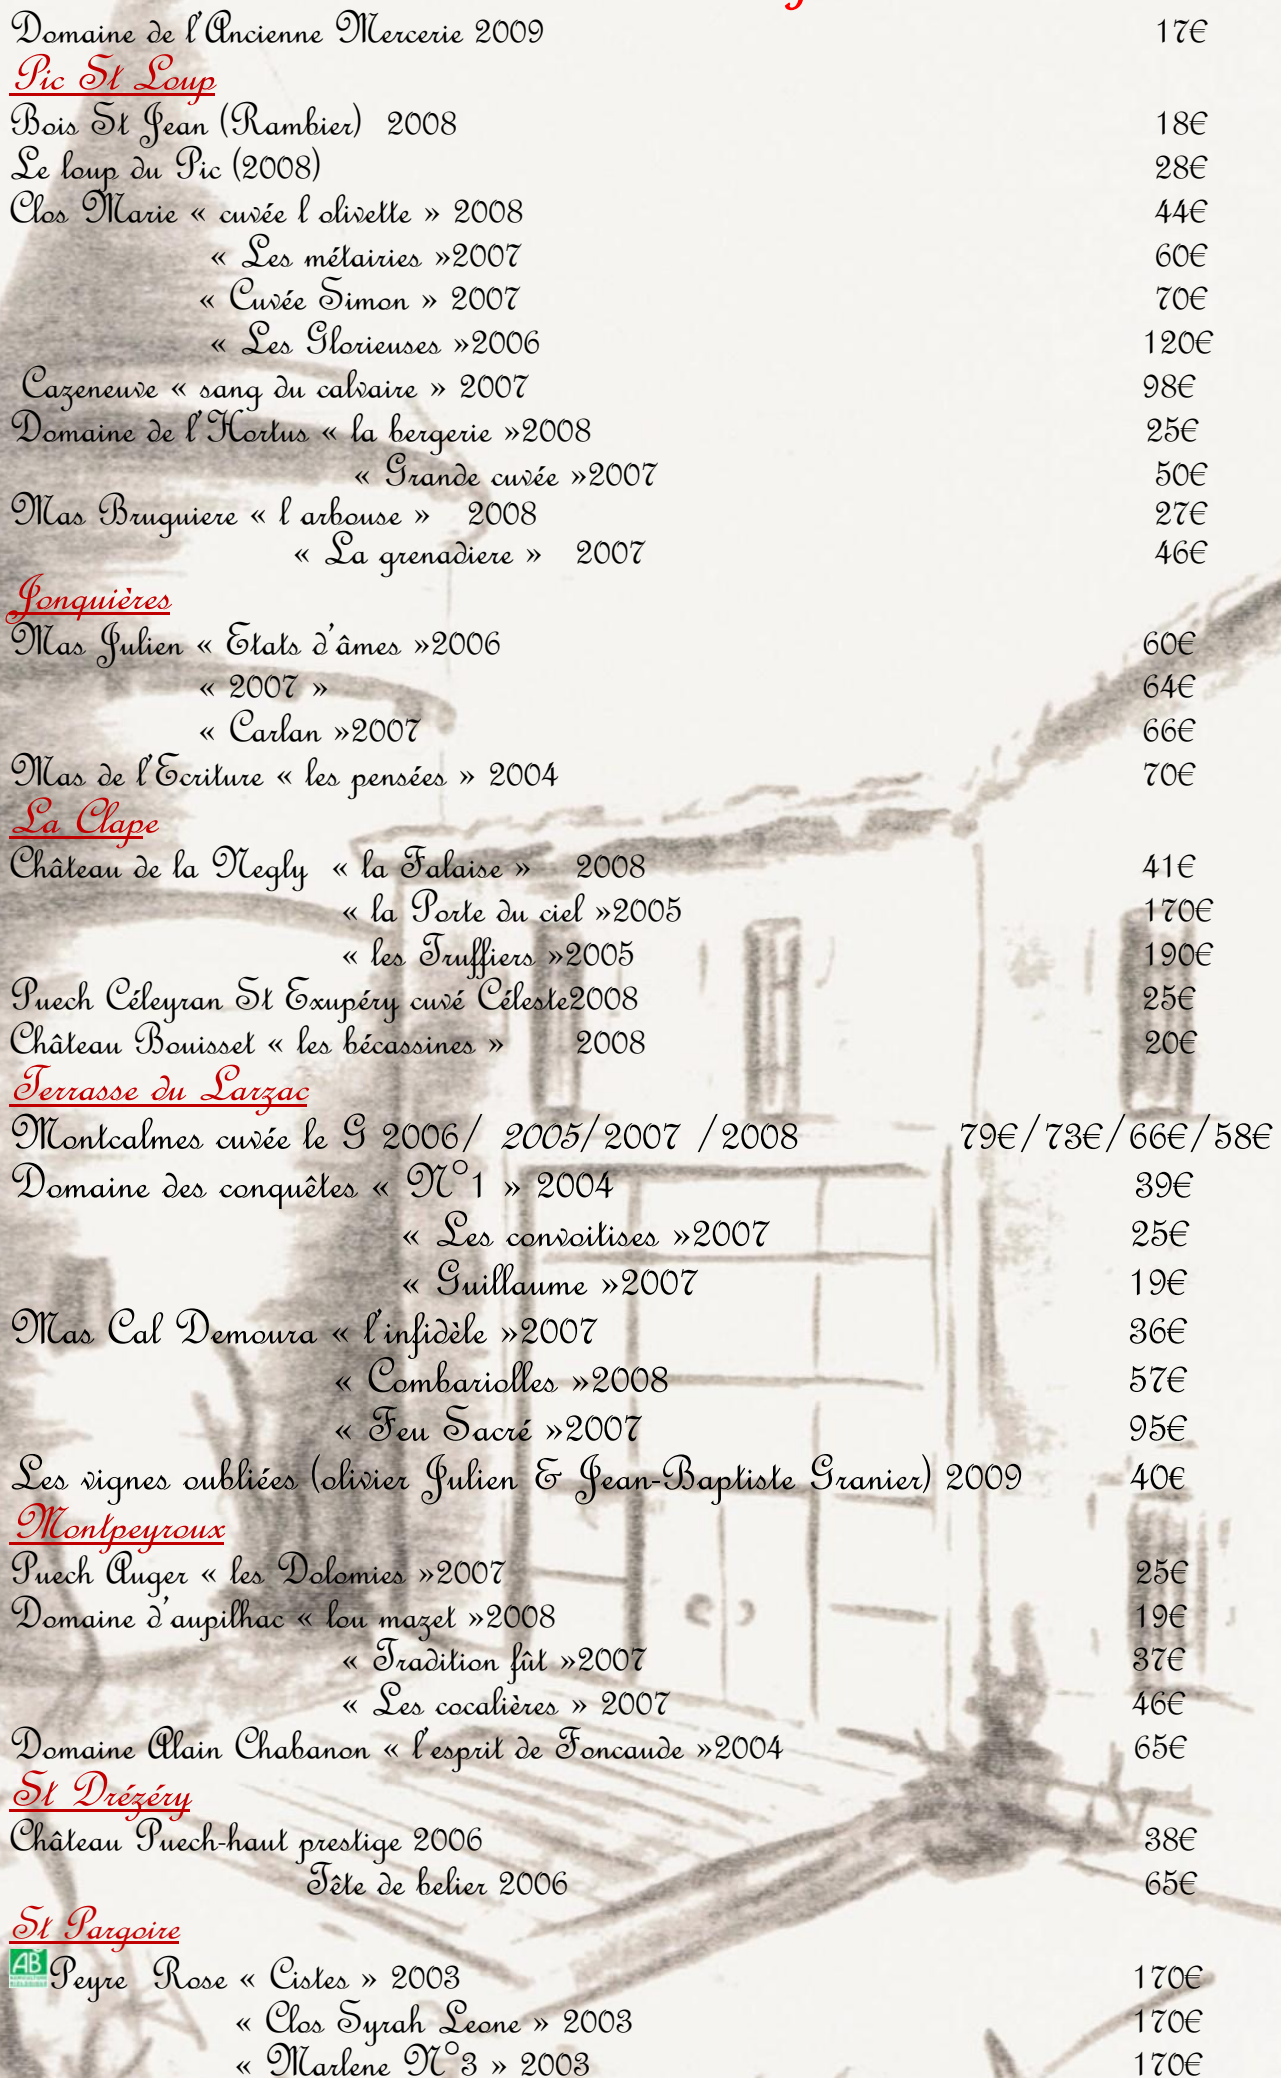 Domaine de l'Ancienne Mercerie 2009 17€
Pic St Loup
Bois St Jean (Rambier) 2008 18€
Le loup du Pic (2008) 28€
Clos Marie « cuvée l olivette » 2008 44€
« Les métairies »2007 60€
« Cuvée Simon » 2007 70€
« Les Glorieuses »2006 120€
Cazeneuve « sang du calvaire » 2007 98€
Domaine de l'Hortus « la bergerie »2008 25€
« Grande cuvée »2007 50€
Mas Bruguiere « l arbouse » 2008 27€
« La grenadiere » 2007 46€
Jonquières
Mas Julien « Etats d'âmes »2006 60€
« 2007 » 64€
« Carlan »2007 66€
Mas de l'Ecriture « les pensées » 2004 70€
La Clape
Château de la Negly « la Falaise » 2008 41€
« la Porte du ciel »2005 170€
« les Truffiers »2005 190€
Puech Céleyran St Exupéry cuvé Céleste2008 25€
Château Bouisset « les bécassines » 2008 20€
Terrasse du Larzac
Montcalmes cuvée le G 2006/ 2005/2007 /2008 79€/73€/66€/58€
Domaine des conquêtes « N°1 » 2004 39€
« Les convoitises »2007 25€
« Guillaume »2007 19€
Mas Cal Demoura « l'infidèle »2007 36€
« Combariolles »2008 57€
« Feu Sacré »2007 95€
Les vignes oubliées (olivier Julien & Jean-Baptiste Granier) 2009 40€
Montpeyroux
Puech Auger « les Dolomies »2007 25€
Domaine d'aupilhac « lou mazet »2008 19€
« Tradition fût »2007 37€
« Les cocalières » 2007 46€
Domaine Alain Chabanon « l'esprit de Foncaude »2004 65€
St Drézéry
Château Puech-haut prestige 2006 38€
Tête de belier 2006 65€
St Pargoire
AB Peyre Rose « Cistes » 2003 170€
« Clos Syrah Leone » 2003 170€
« Marlene N°3 » 2003 170€